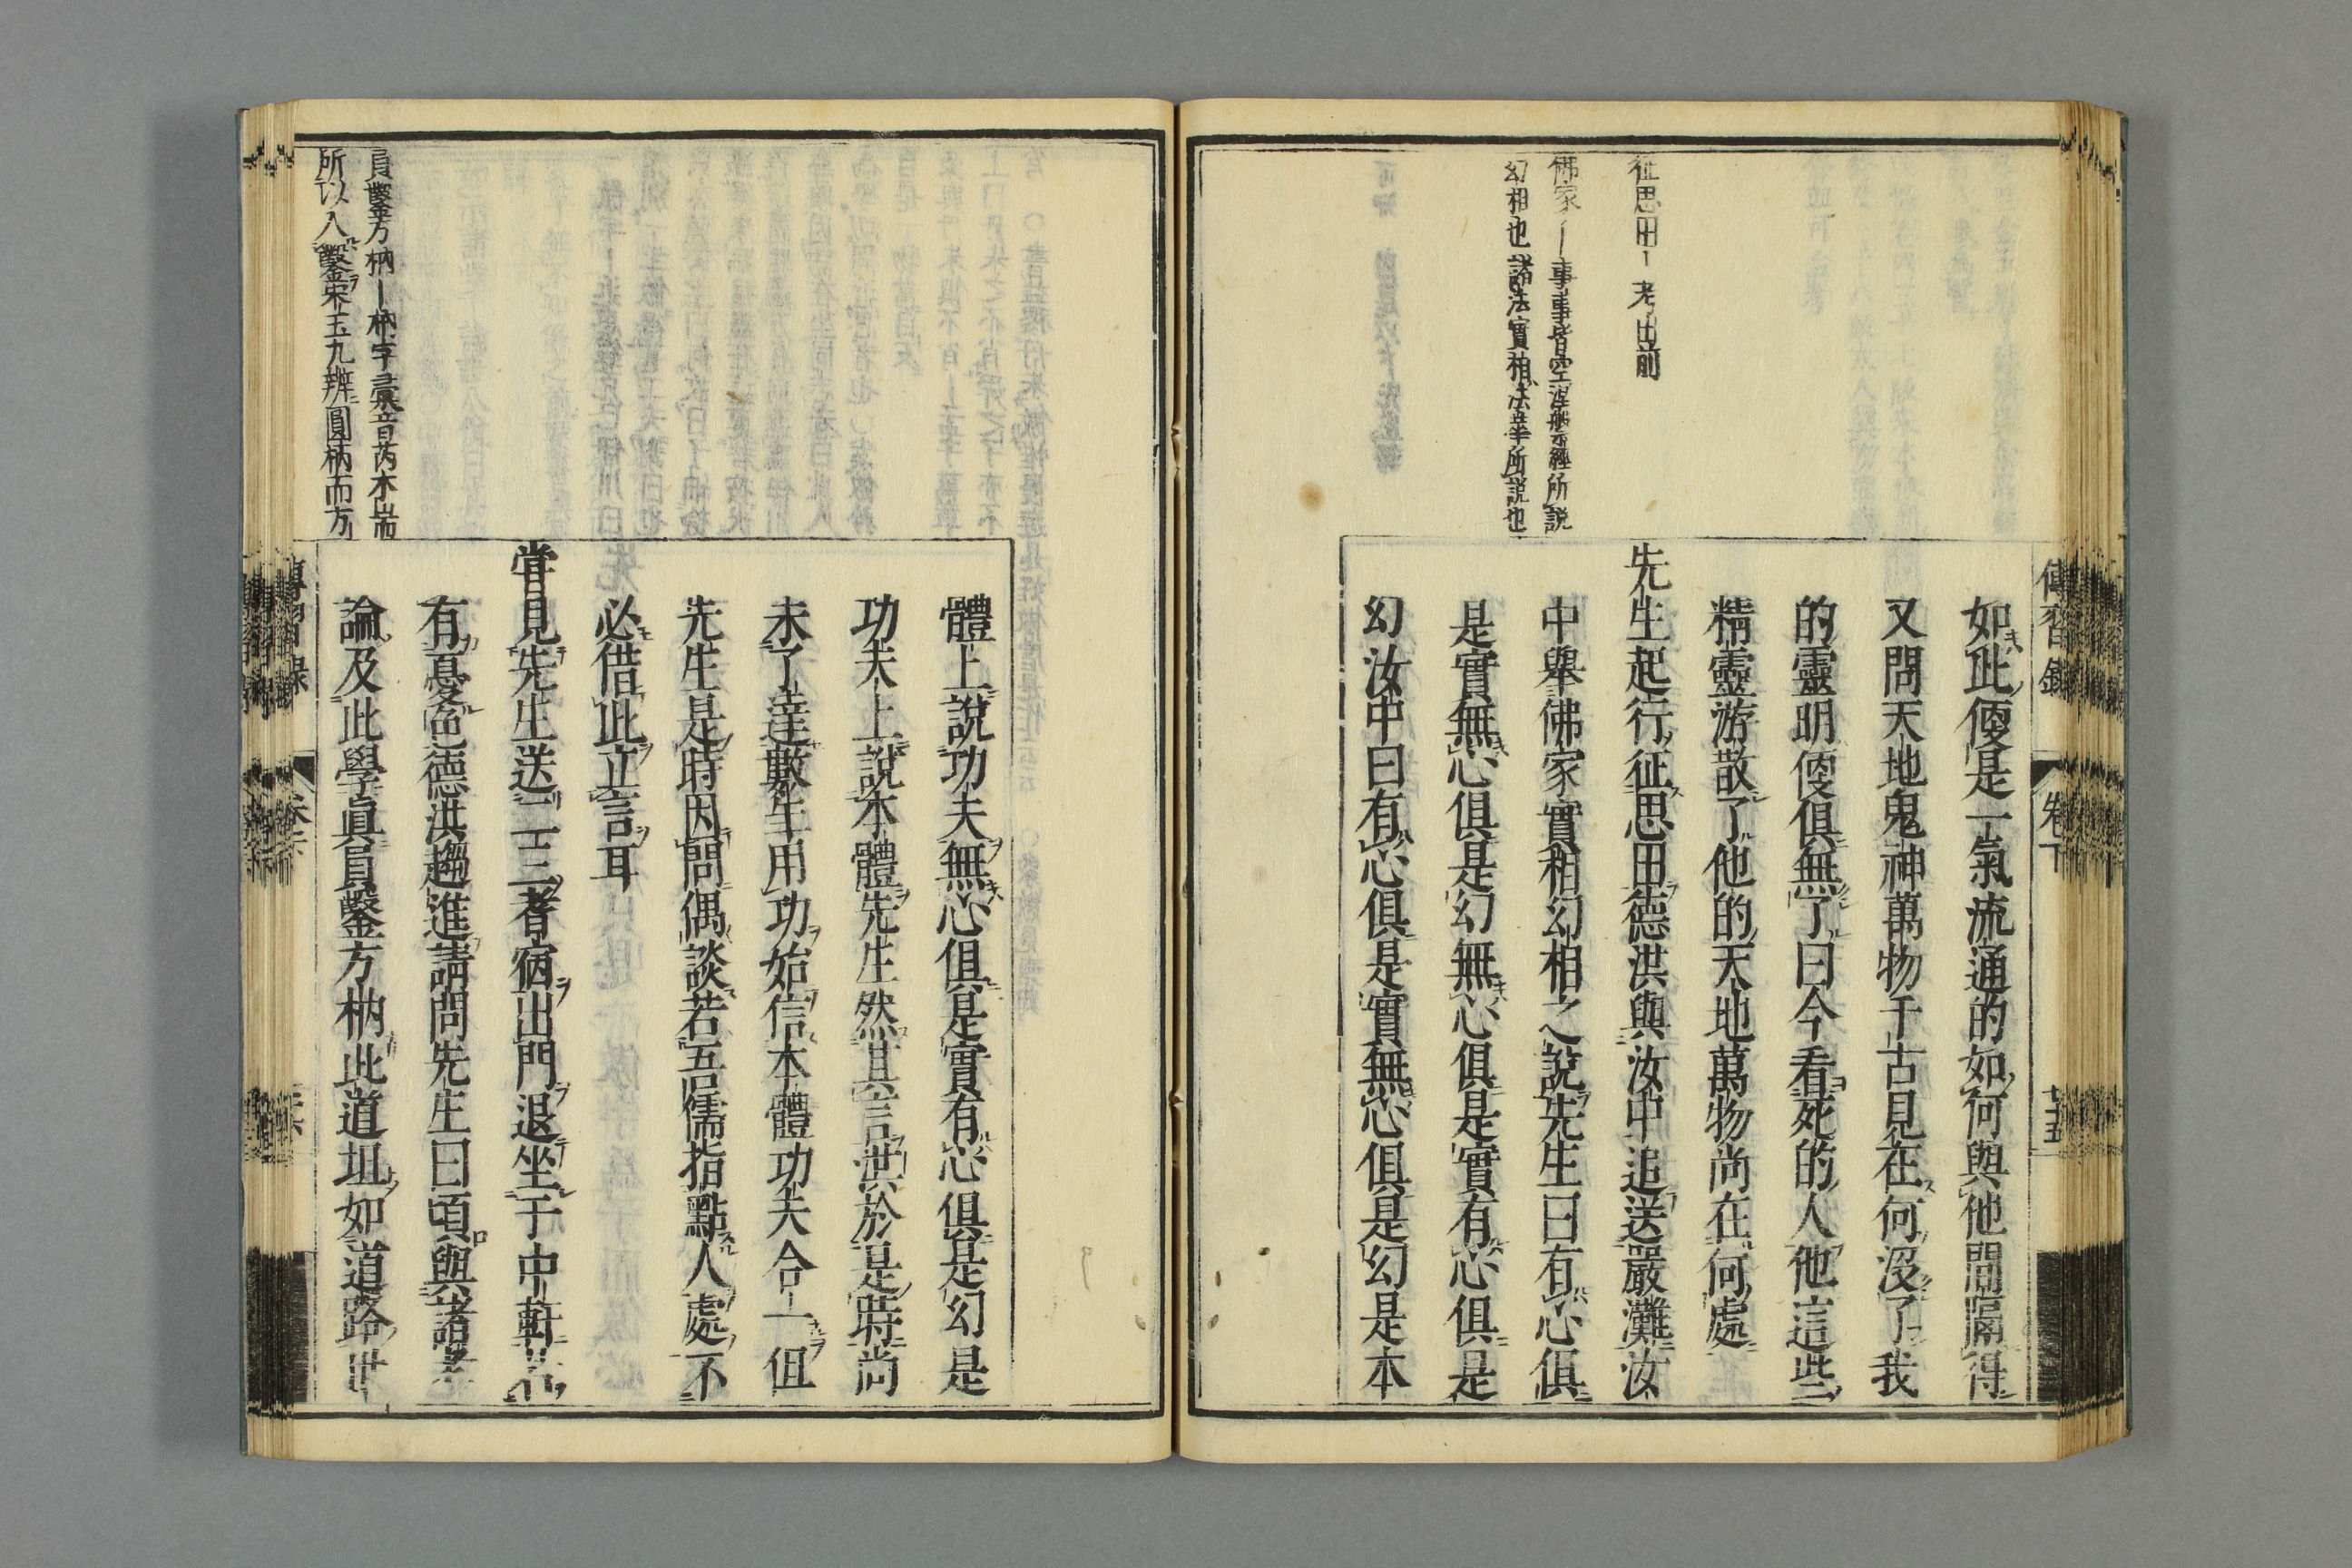 傳習録
卷下
廿五
征思田｜考出前
佛家｜｜事事皆空涅槃經所説
幻相也諸法實相法華所説也
如此便是一氣流通的如何與他間隔得
又問天地鬼神萬物千古見在何没了我
的靈明便俱無了曰今看死的人他這些
精靈游散了他的天地萬物尚在何處
先生起行征思田德洪與汝中追送嚴灘汝
中舉佛家實相幻相之說先生曰有心俱
是實無心俱是幻無心俱是實有心俱是
幻汝中曰有心俱是實無心俱是幻是本
員鑿方枘｜枘字彙音芮木耑
所以入鑿宋玉九辨圓枘而方
體上說功夫無心俱是實有心俱是幻是
功夫上說本體先生然其言洪於是時尚
未了達數年用功始信本體功夫合一但
先生是時因問偶談若吾儒指點人處不
必借此立言耳
甞見先生送二三耆宿出門退坐于中軒若
有憂色德洪趨進請問先生曰頃與諸老
論及此學眞員鑿方枘此道坦如道路世
傳習録